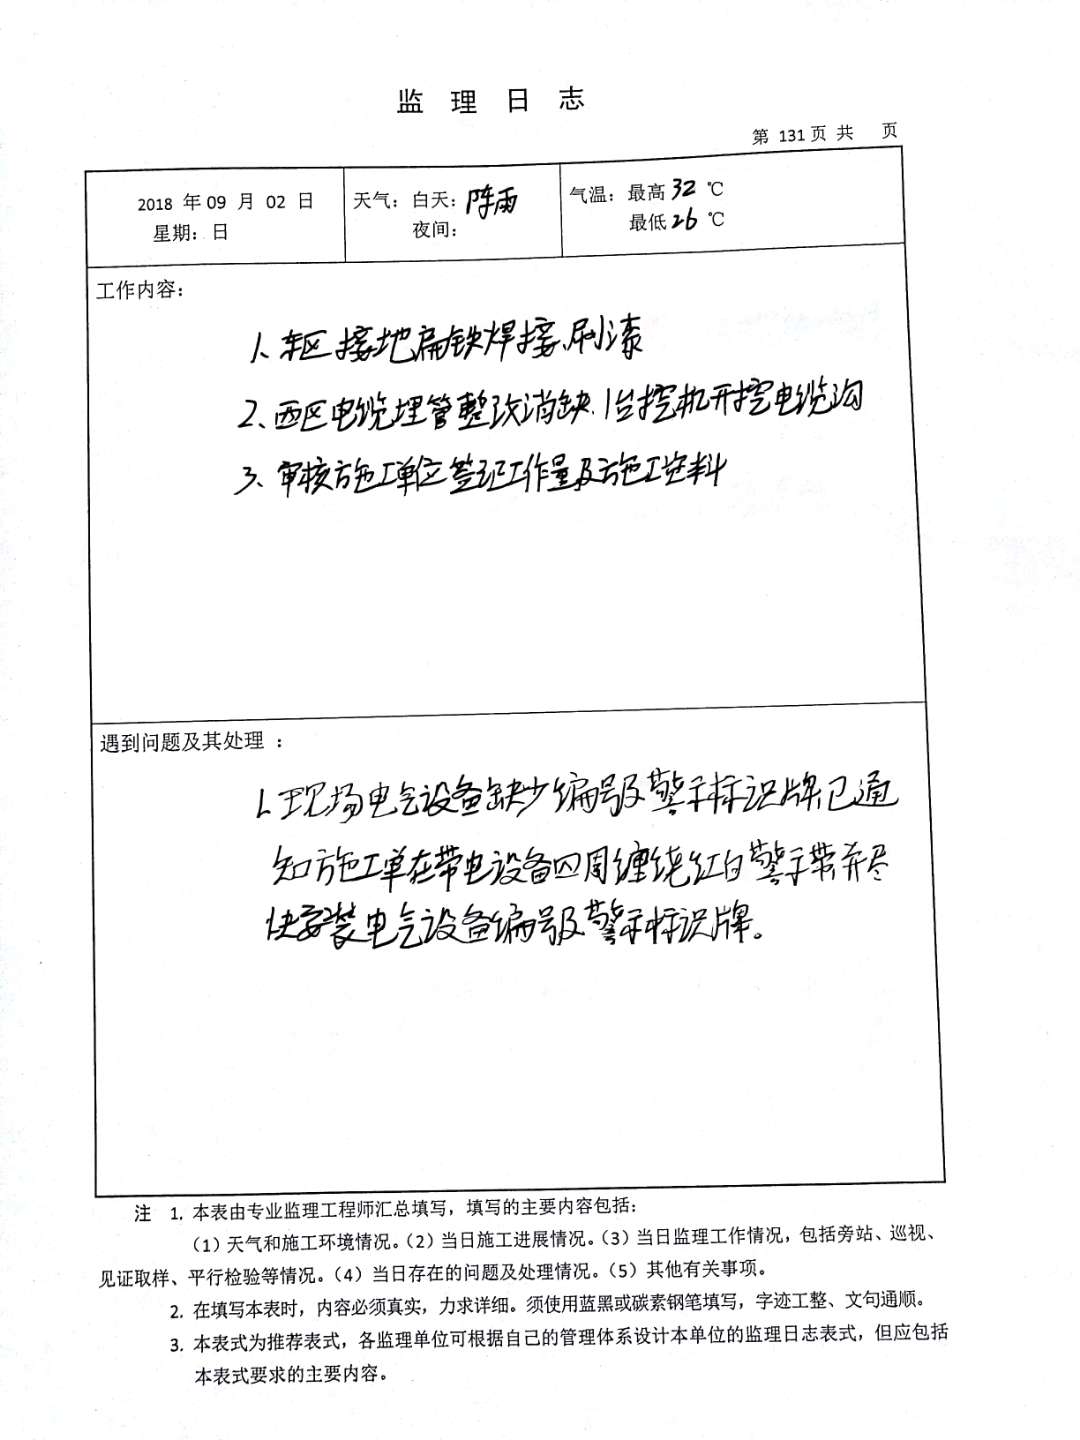 监 理 日 志
第 131 页 共 页
2018 年 09 月 02 日
星期：日
天气：白天：阵雨
夜间：
气温：最高 32 ℃
最低 26 ℃
工作内容：
1、东区接地扁铁焊接、刷漆
2、西区电缆埋管整改消缺、1台挖机开挖电缆沟
3、审核施工单位签证工作量及施工资料
遇到问题及其处理 ：
1、现场电气设备缺少编号及警示标识牌，已通
知施工单在带电设备四周缠绕红白警示带并尽
快安装电气设备编号及警示标识牌。
注 1. 本表由专业监理工程师汇总填写，填写的主要内容包括：
（1）天气和施工环境情况。（2）当日施工进展情况。（3）当日监理工作情况，包括旁站、巡视、
见证取样、平行检验等情况。（4）当日存在的问题及处理情况。（5）其他有关事项。
2. 在填写本表时，内容必须真实，力求详细。须使用蓝黑或碳素钢笔填写，字迹工整、文句通顺。
3. 本表式为推荐表式，各监理单位可根据自己的管理体系设计本单位的监理日志表式，但应包括
本表式要求的主要内容。